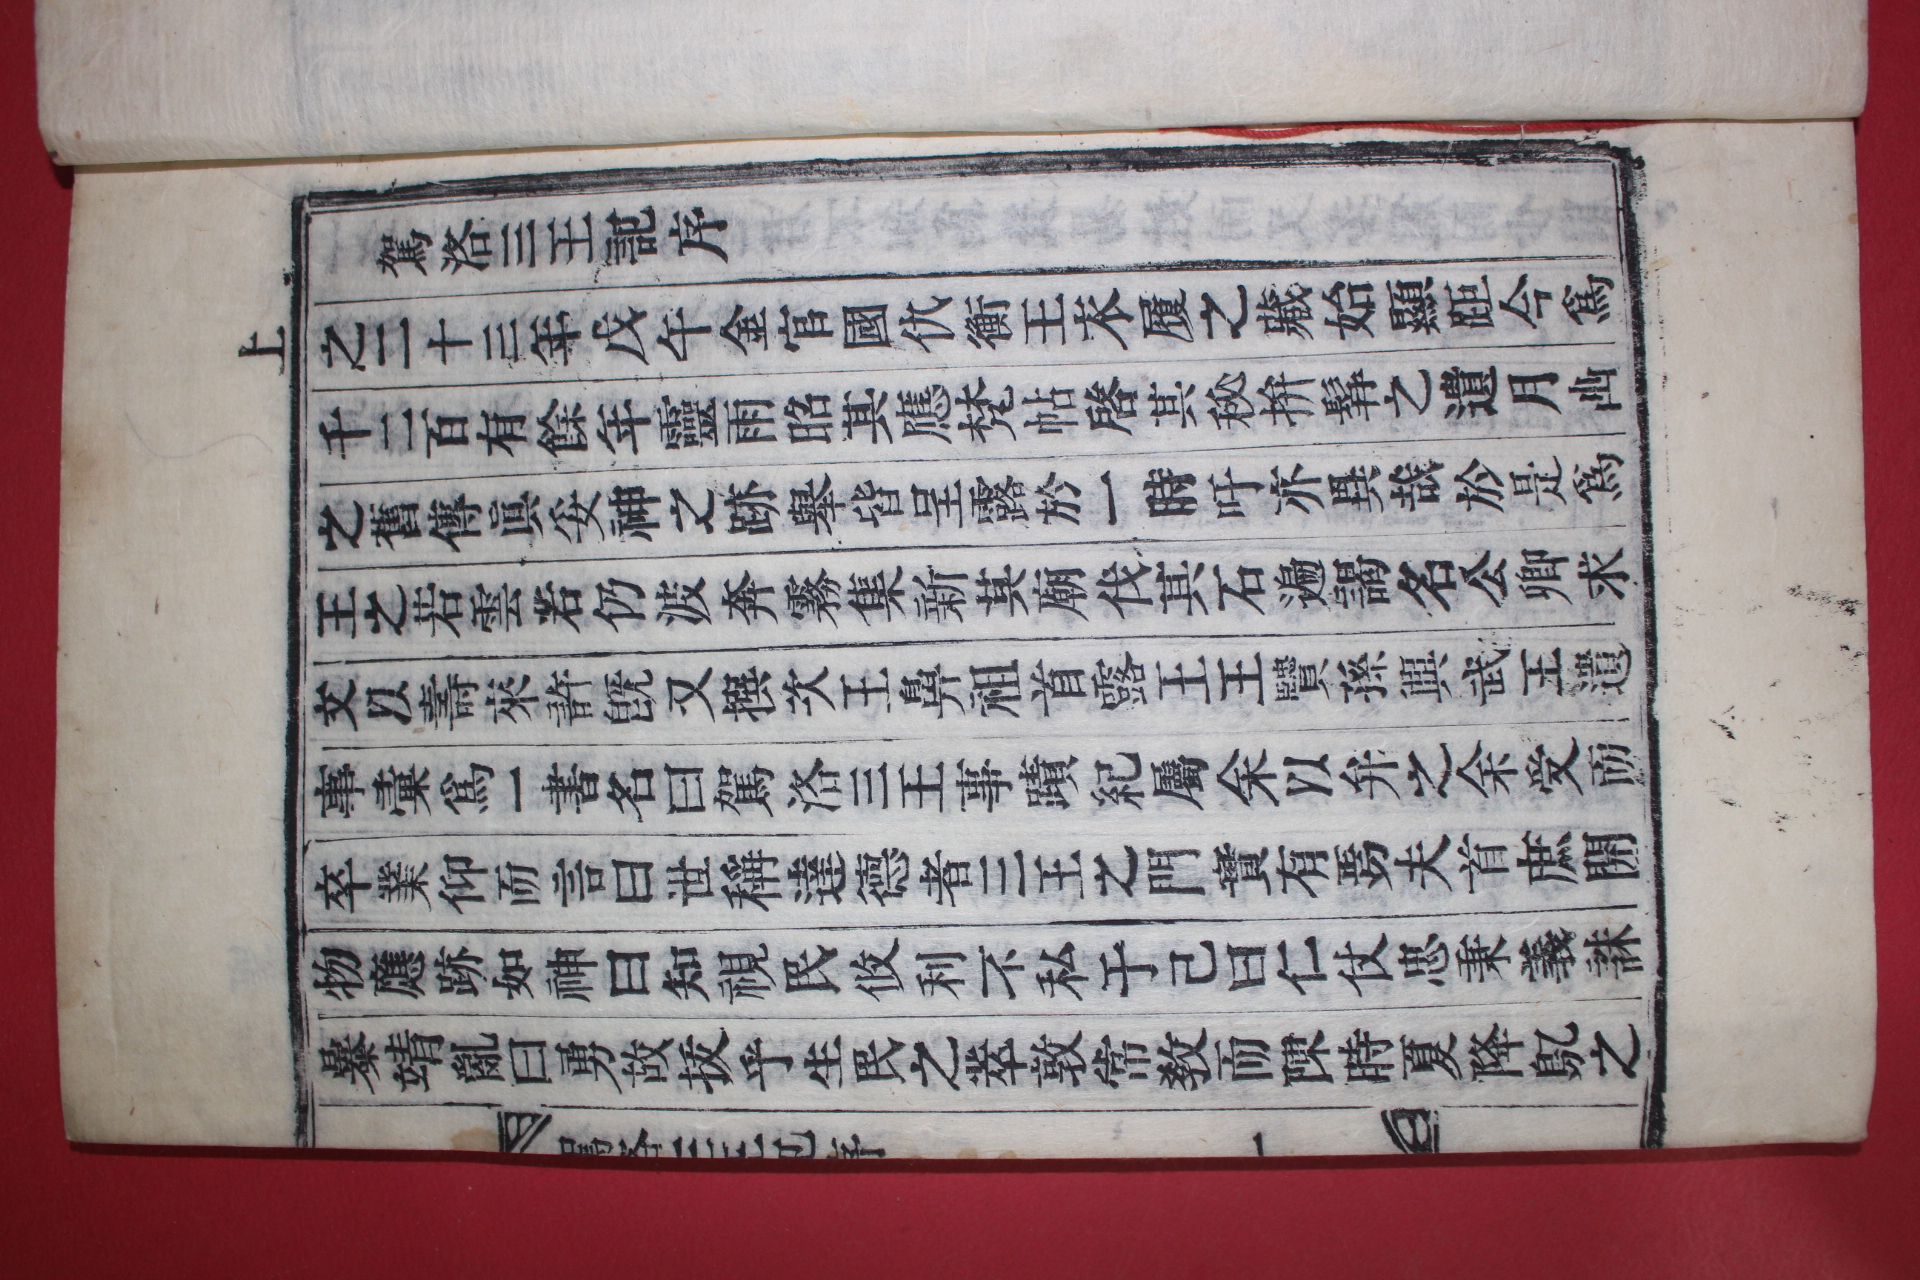 駕洛三王記序
上
之二十三年戊午金官國仇衡王衣履之藏始顯距今爲
千二百有餘年靈雨昭其應梵帖啓其秘拚髴之遺月幽
之舊傳眞妥神之跡擧皆呈露於一時吁亦異哉於是爲
王之若雲若仍波奔霧集新其廟伐其石遍謁名公卿求
文以壽來許旣又撰次王鼻祖首露王王賢孫興武王遺
事彙爲一書名曰駕洛三王事蹟紀屬余以弁之余受而
卒業仰而言曰世稱達德者三王之門實有焉夫首庶開
物應跡如神曰知視民攸利不私于己曰仁仗忠秉義誅
暴靖亂曰勇故拔乎生民之萃敦常敎而陳時夏降鳧之
駕洛三王記序
一